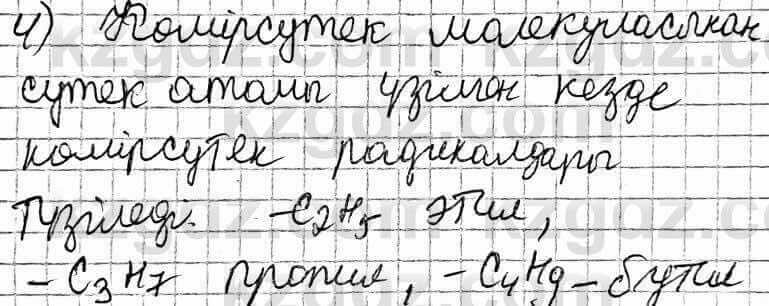 4) Көмірсутек молекуласынан
сутек атомы үзілген кезде
көмірсутек радикалдары
түзіледі. -C₂H₅ этил,
-C₃H₇ пропил, -C₄H₉ - бутил